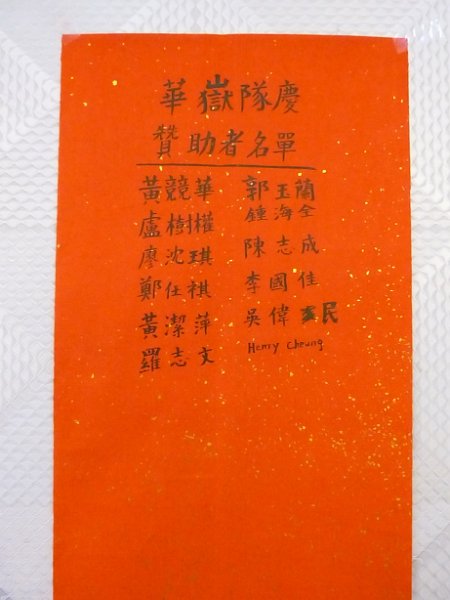 華嶽隊慶
贊助者名單
黃競華 郭玉蘭
盧樹權 鍾海全
廖沈琪 陳志成
鄭任祺 李國佳
黃潔萍 吳偉民
羅志文 Henry Cheung